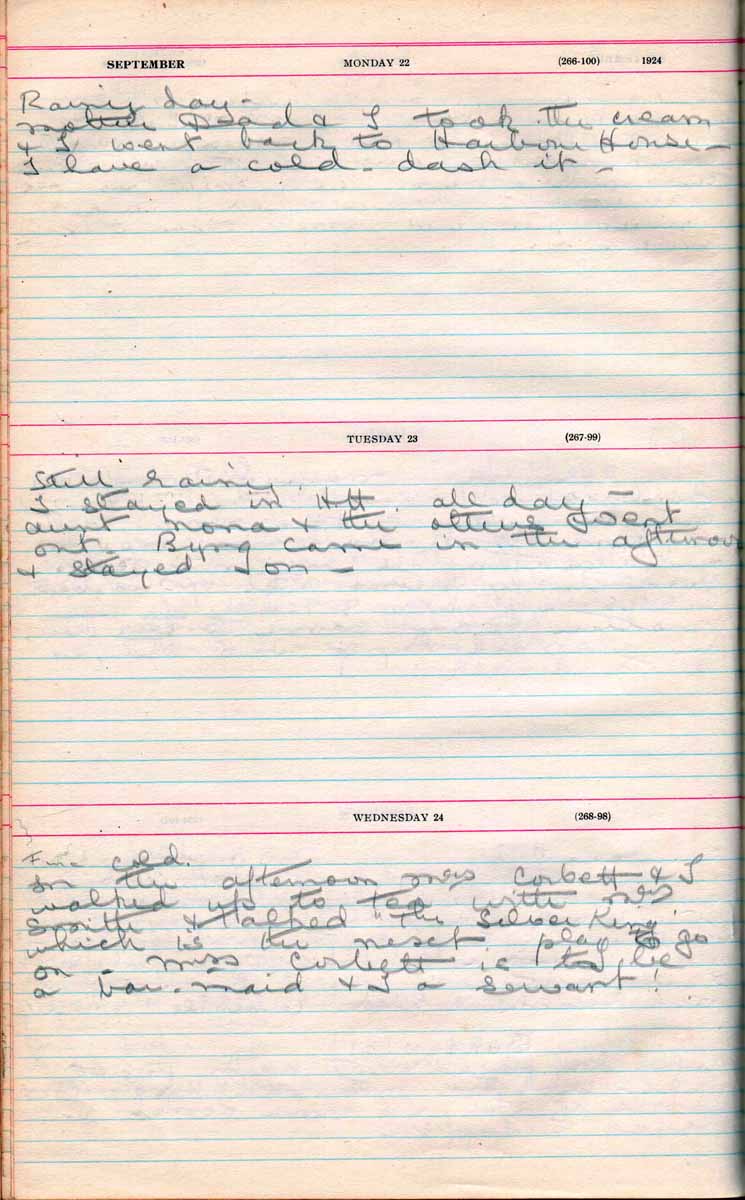 SEPTEMBER MONDAY 22 (266-100) 1924
Rainy day -
mother Dad & I took the cream
& I went back to Harbour House -
I have a cold - dash it -
TUESDAY 23 (267-99)
Still rainy.
I stayed in HH. all day -
aunt nona & the others went
out. Byng came in the afternoon
& stayed on -
WEDNESDAY 24 (268-98)
Fine cold.
In the afternoon miss Corbett & I
walked up to tea with mrs
Smith & talked "The Silver King
which is the next play to go
on - miss Corbett is to be
a bar-maid & I a servant!